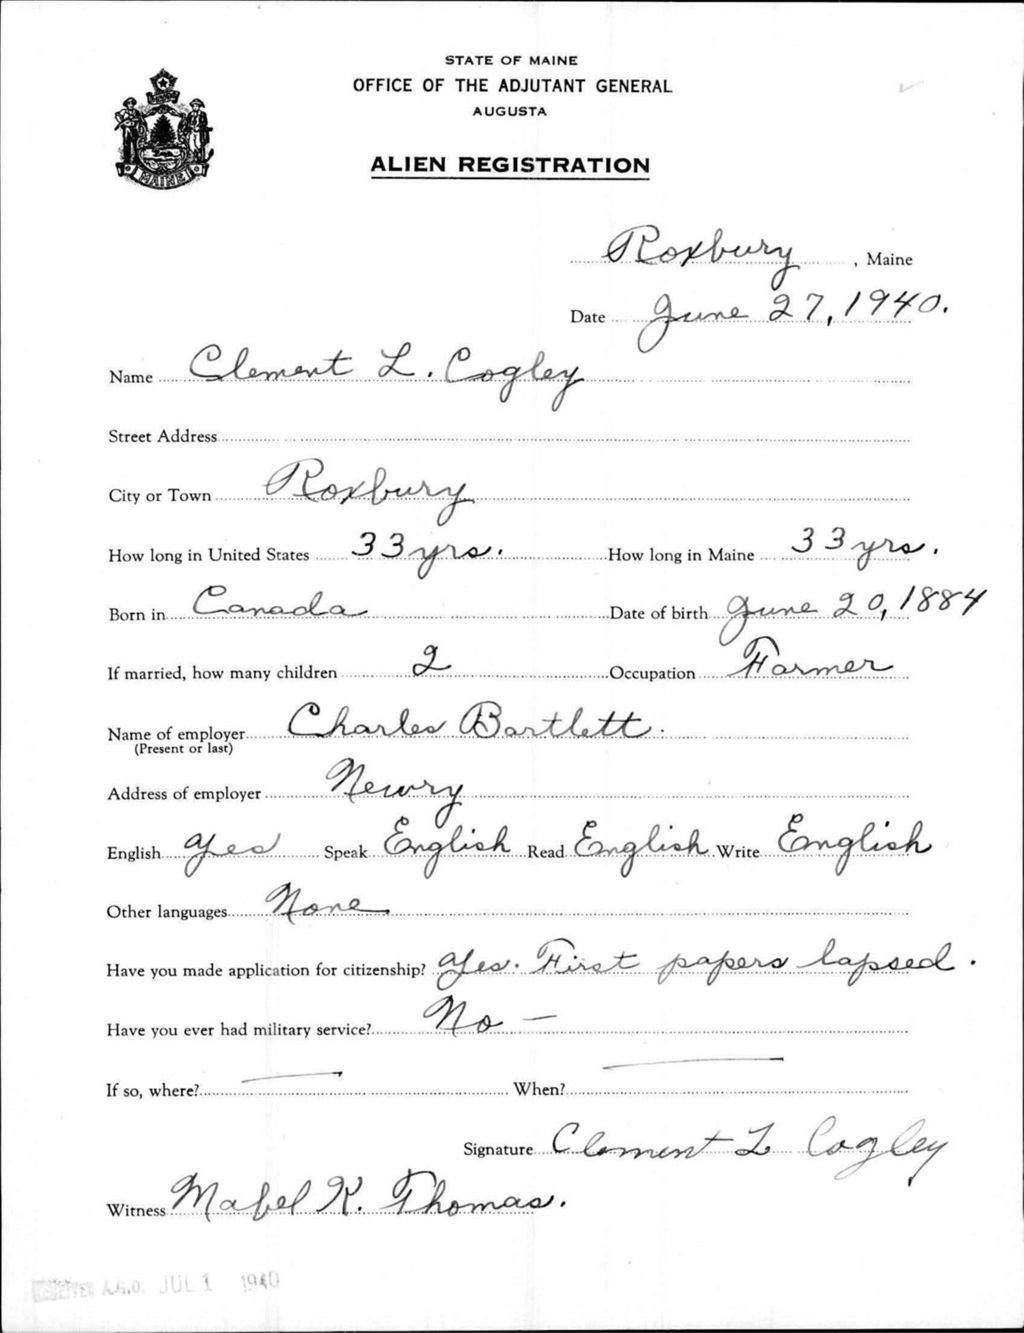 STATE OF MAINE
OFFICE OF THE ADJUTANT GENERAL
AUGUSTA
ALIEN REGISTRATION
MAINE
Roxbury, Maine
Date June 27, 1940.
Name Clement L. Cogley
Street Address
City or Town Roxbury
How long in United States 33 yrs. How long in Maine 33 yrs.
Born in Canada Date of birth June 20, 1884
If married, how many children 2 Occupation Farmer
Name of employer Charles Bartlett.
(Present or last)
Address of employer Newry
English Yes Speak English Read English Write English
Other languages None
Have you made application for citizenship? Yes. First papers lapsed.
Have you ever had military service? No –
If so, where? — When? —
Signature Clement L Cogley
Witness Mabel K. Thomas.
A.G.O. JUL 1 1940